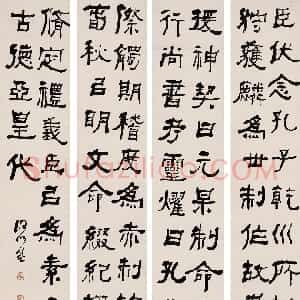 臣伏念孔子乾巛所
狩獲麟為世制作故
援神契曰元制命
行尚書考靈燿曰孔
際觸期稽度為赤制
春秋㠯明文命綴紀
脩定禮義臣㠯為素
古德亞皇代